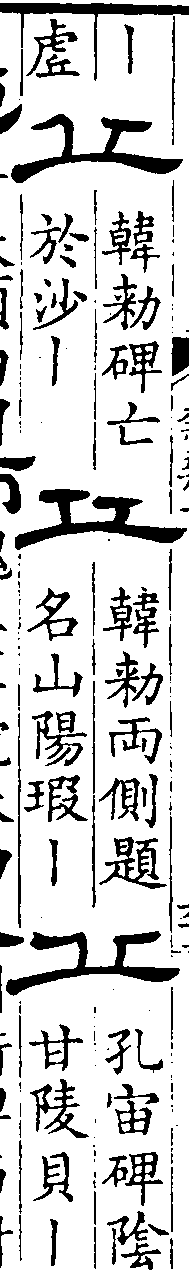 丨
虗
丘
韓勑碑亡
於沙丨
丘
韓勑両側題
名山陽瑕丨
丘
孔宙碑陰
甘陵貝丨